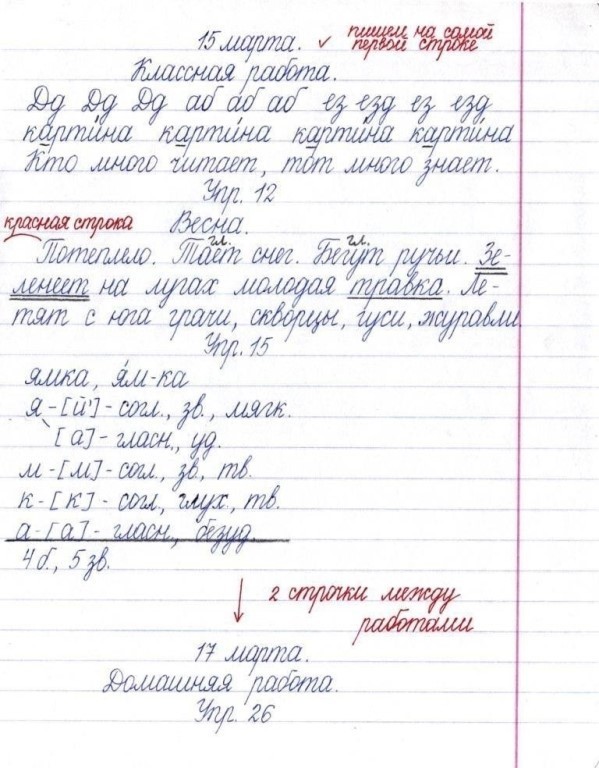 15 марта. ✓ пишем на самой
первой строке
Классная работа.
Дд Дд Дд аб аб аб ез езд ез езд
картина картина картина картина
Кто много читает, тот много знает.
Упр. 12
красная строка Весна.
гл. гл.
Потеплело. Тает снег. Бегут ручьи. Зе-
ленеет на лугах молодая травка. Ле-
тят с юга грачи, скворцы, гуси, журавли.
Упр. 15
ямка, я́м-ка
я - [й'] - согл., зв., мягк.
[а] - гласн., уд.
м - [м] - согл., зв., тв.
к - [к] - согл., глух., тв.
а - [а] - гласн., безуд.
4 б., 5 зв.
2 строчки между
работами
17 марта.
Домашняя работа.
Упр. 26